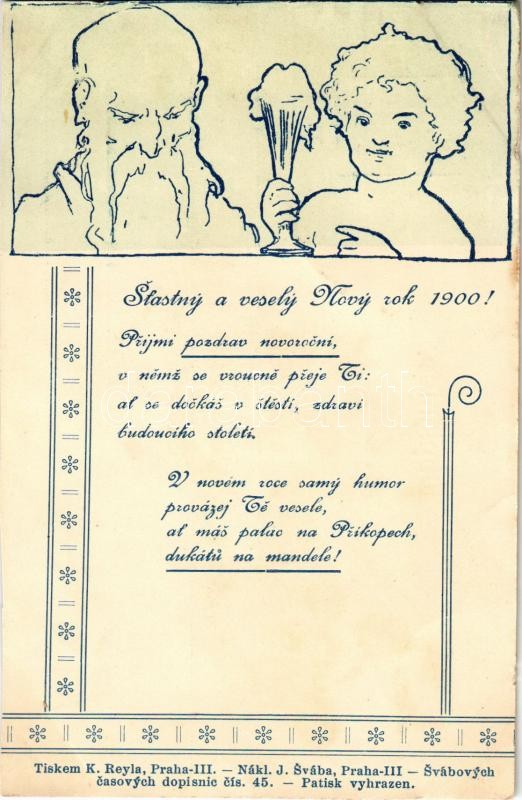 Šťastný a veselý Nový rok 1900!
Přijmi pozdrav novoroční,
v němž se vroucně přeje Ti:
ať se dočkáš v štěstí, zdraví
budoucího století.
V novém roce samý humor
provázej Tě vesele,
ať máš palac na Příkopech,
dukátů na mandele!
Tiskem K. Reyla, Praha-III. — Nákl. J. Švába, Praha-III — Švábových
časových dopisnic čís. 45. — Patisk vyhrazen.